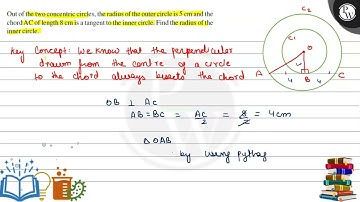 Out of the two concentric circles, the radius of the outer circle is 5 cm and the
chord AC of length 8 cm is a tangent to the inner circle. Find the radius of the
inner circle.
Key Concept: We know that the perpendicular
drawn from the centre of a circle
to the chord always bisects the chord
C₂
C₁
O
r
A
4
B
4
C
OB ⊥ AC
AB = BC = AC/2 = 8/2 = 4 cm
△OAB
by using pythag